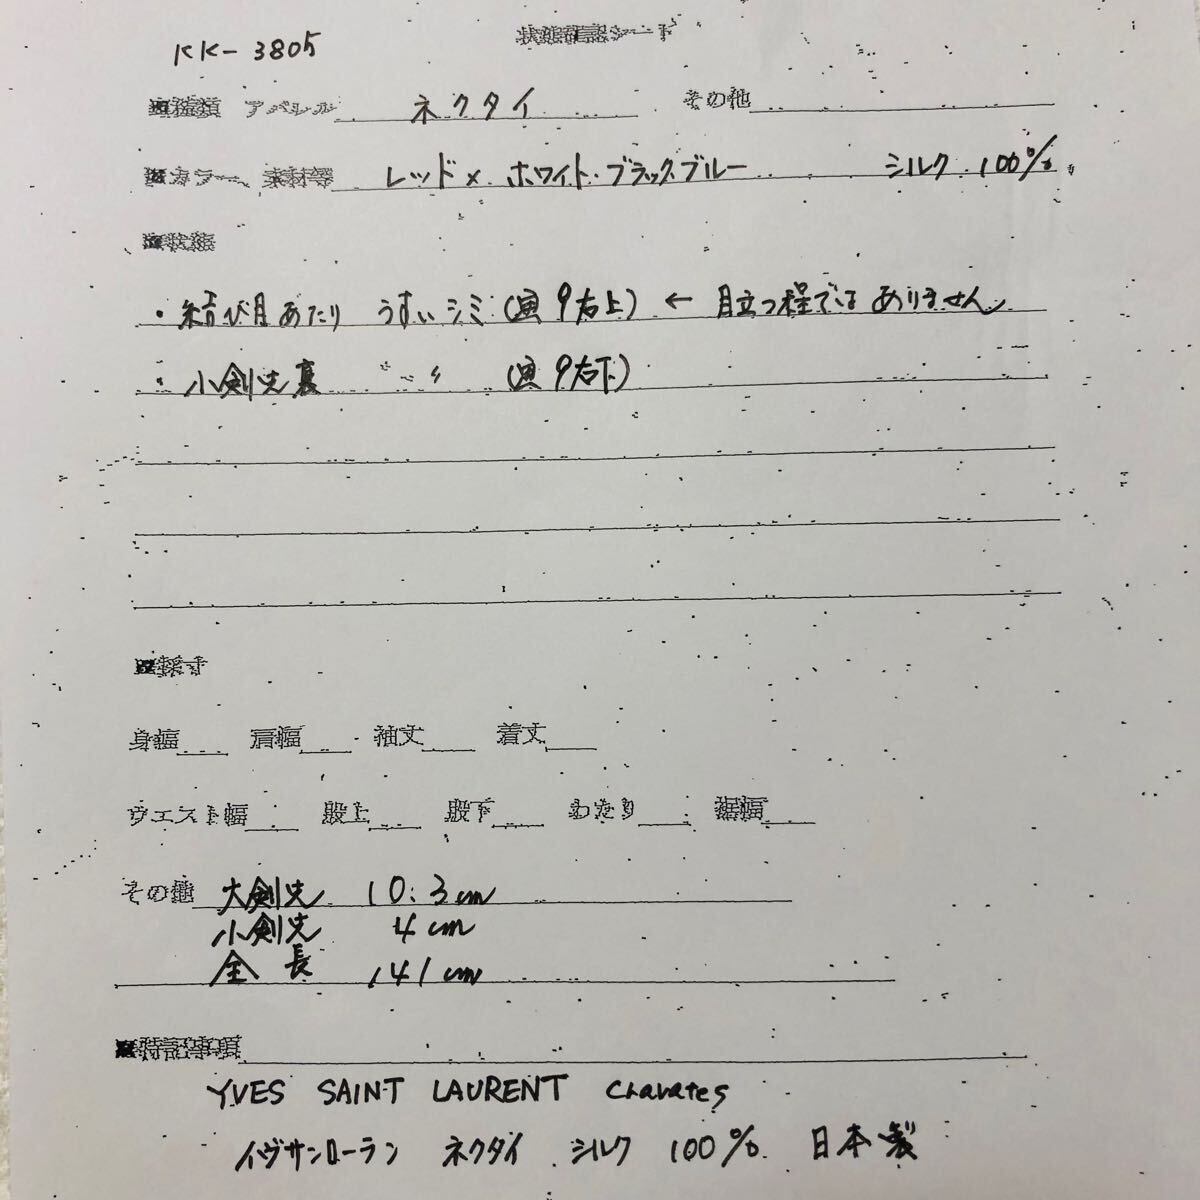 KK-3805
状態確認シート
■種類 アパレル ネクタイ その他
■カラー、素材等 レッド× ホワイト・ブラックブルー シルク 100%
■状態
・結び目あたり うすいシミ (画 9右上) ← 目立つ程ではありません
・小剣先裏 〃 (画 9右下)
■採寸
身幅 肩幅 袖丈 着丈
ウエスト幅 股上 股下 わたり 裾幅
その他 大剣先 10.3cm
小剣先 4cm
全長 141cm
■特記事項
YVES SAINT LAURENT Cravates
イヴサンローラン ネクタイ シルク 100% 日本製